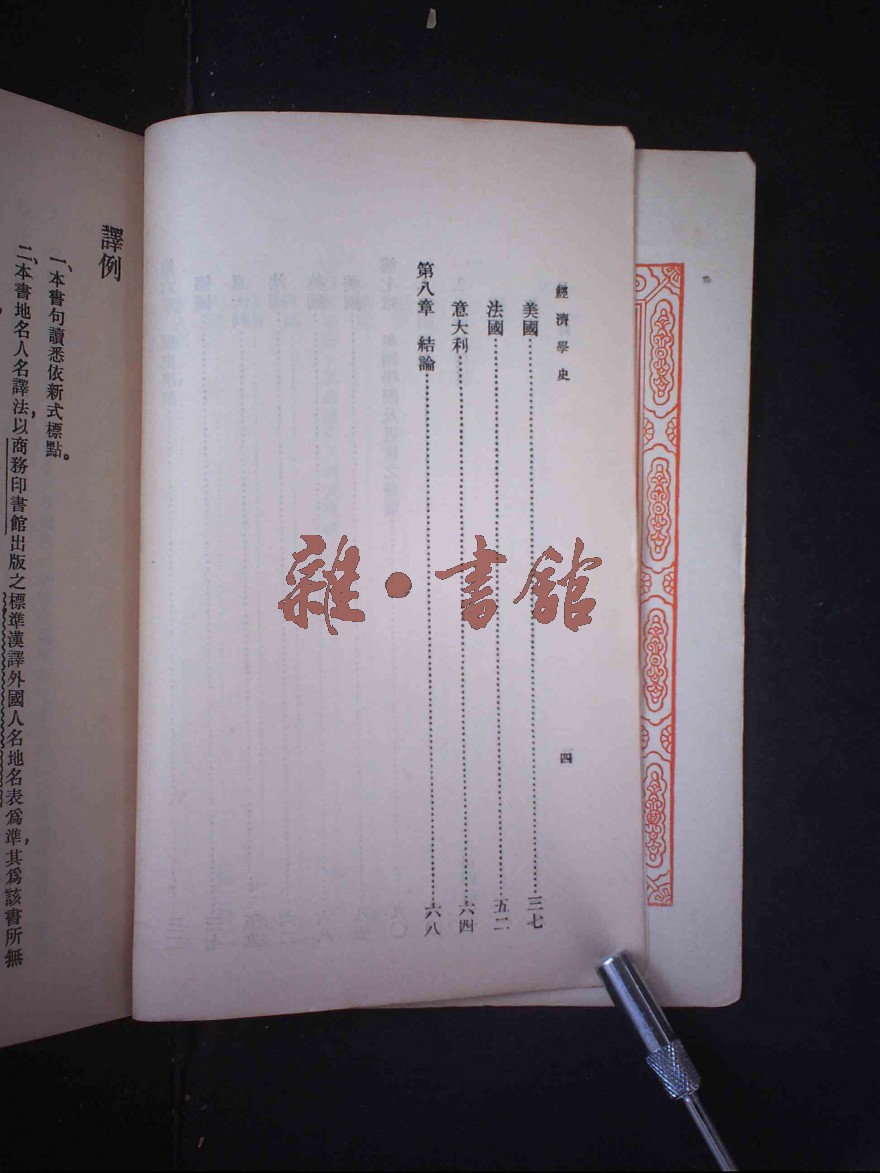 經濟學史
四
美國……三七
法國……五二
意大利……六四
第八章 結論……六八
譯例
一、本書句讀悉依新式標點。
二、本書地名人名譯法,以商務印書館出版之標準漢譯外國人名地名表爲準,其爲該書所無
雜·書館